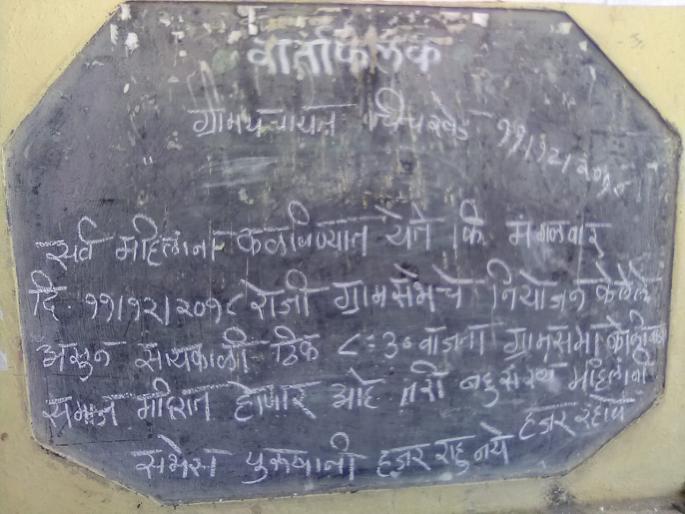 वार्ताफलक
ग्रामपंचायत चिंचखेड ११/१२/२०१८
सर्व महिलांना कळविण्यात येते कि मंगळवार
दि. ११/१२/२०१८ रोजी ग्रामसभेचे नियोजन केलेले
असुन सायकाळी ठिक ८:३० वाजता ग्रामसभा कोळीवाडा
समाज मंदिरात होणार आहे तरी बहुसंख्य महिलांनी
हजर रहावे
सभेस पुरूषांनी हजर राहु नये